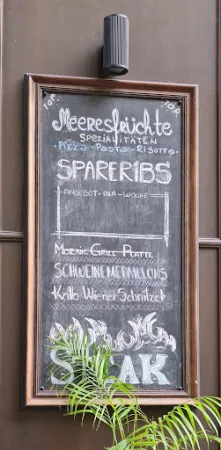 TOP TOP
Meeresfrüchte
SPEZIALITÄTEN
Pizza - Pasta - Risotto
SPARERIBS
ANGEBOT - DER - WOCHE
Mozaik Grill Platte
SCHWEINEMEDALLIONS
Kalb Wiener Schnitzel
STEAK